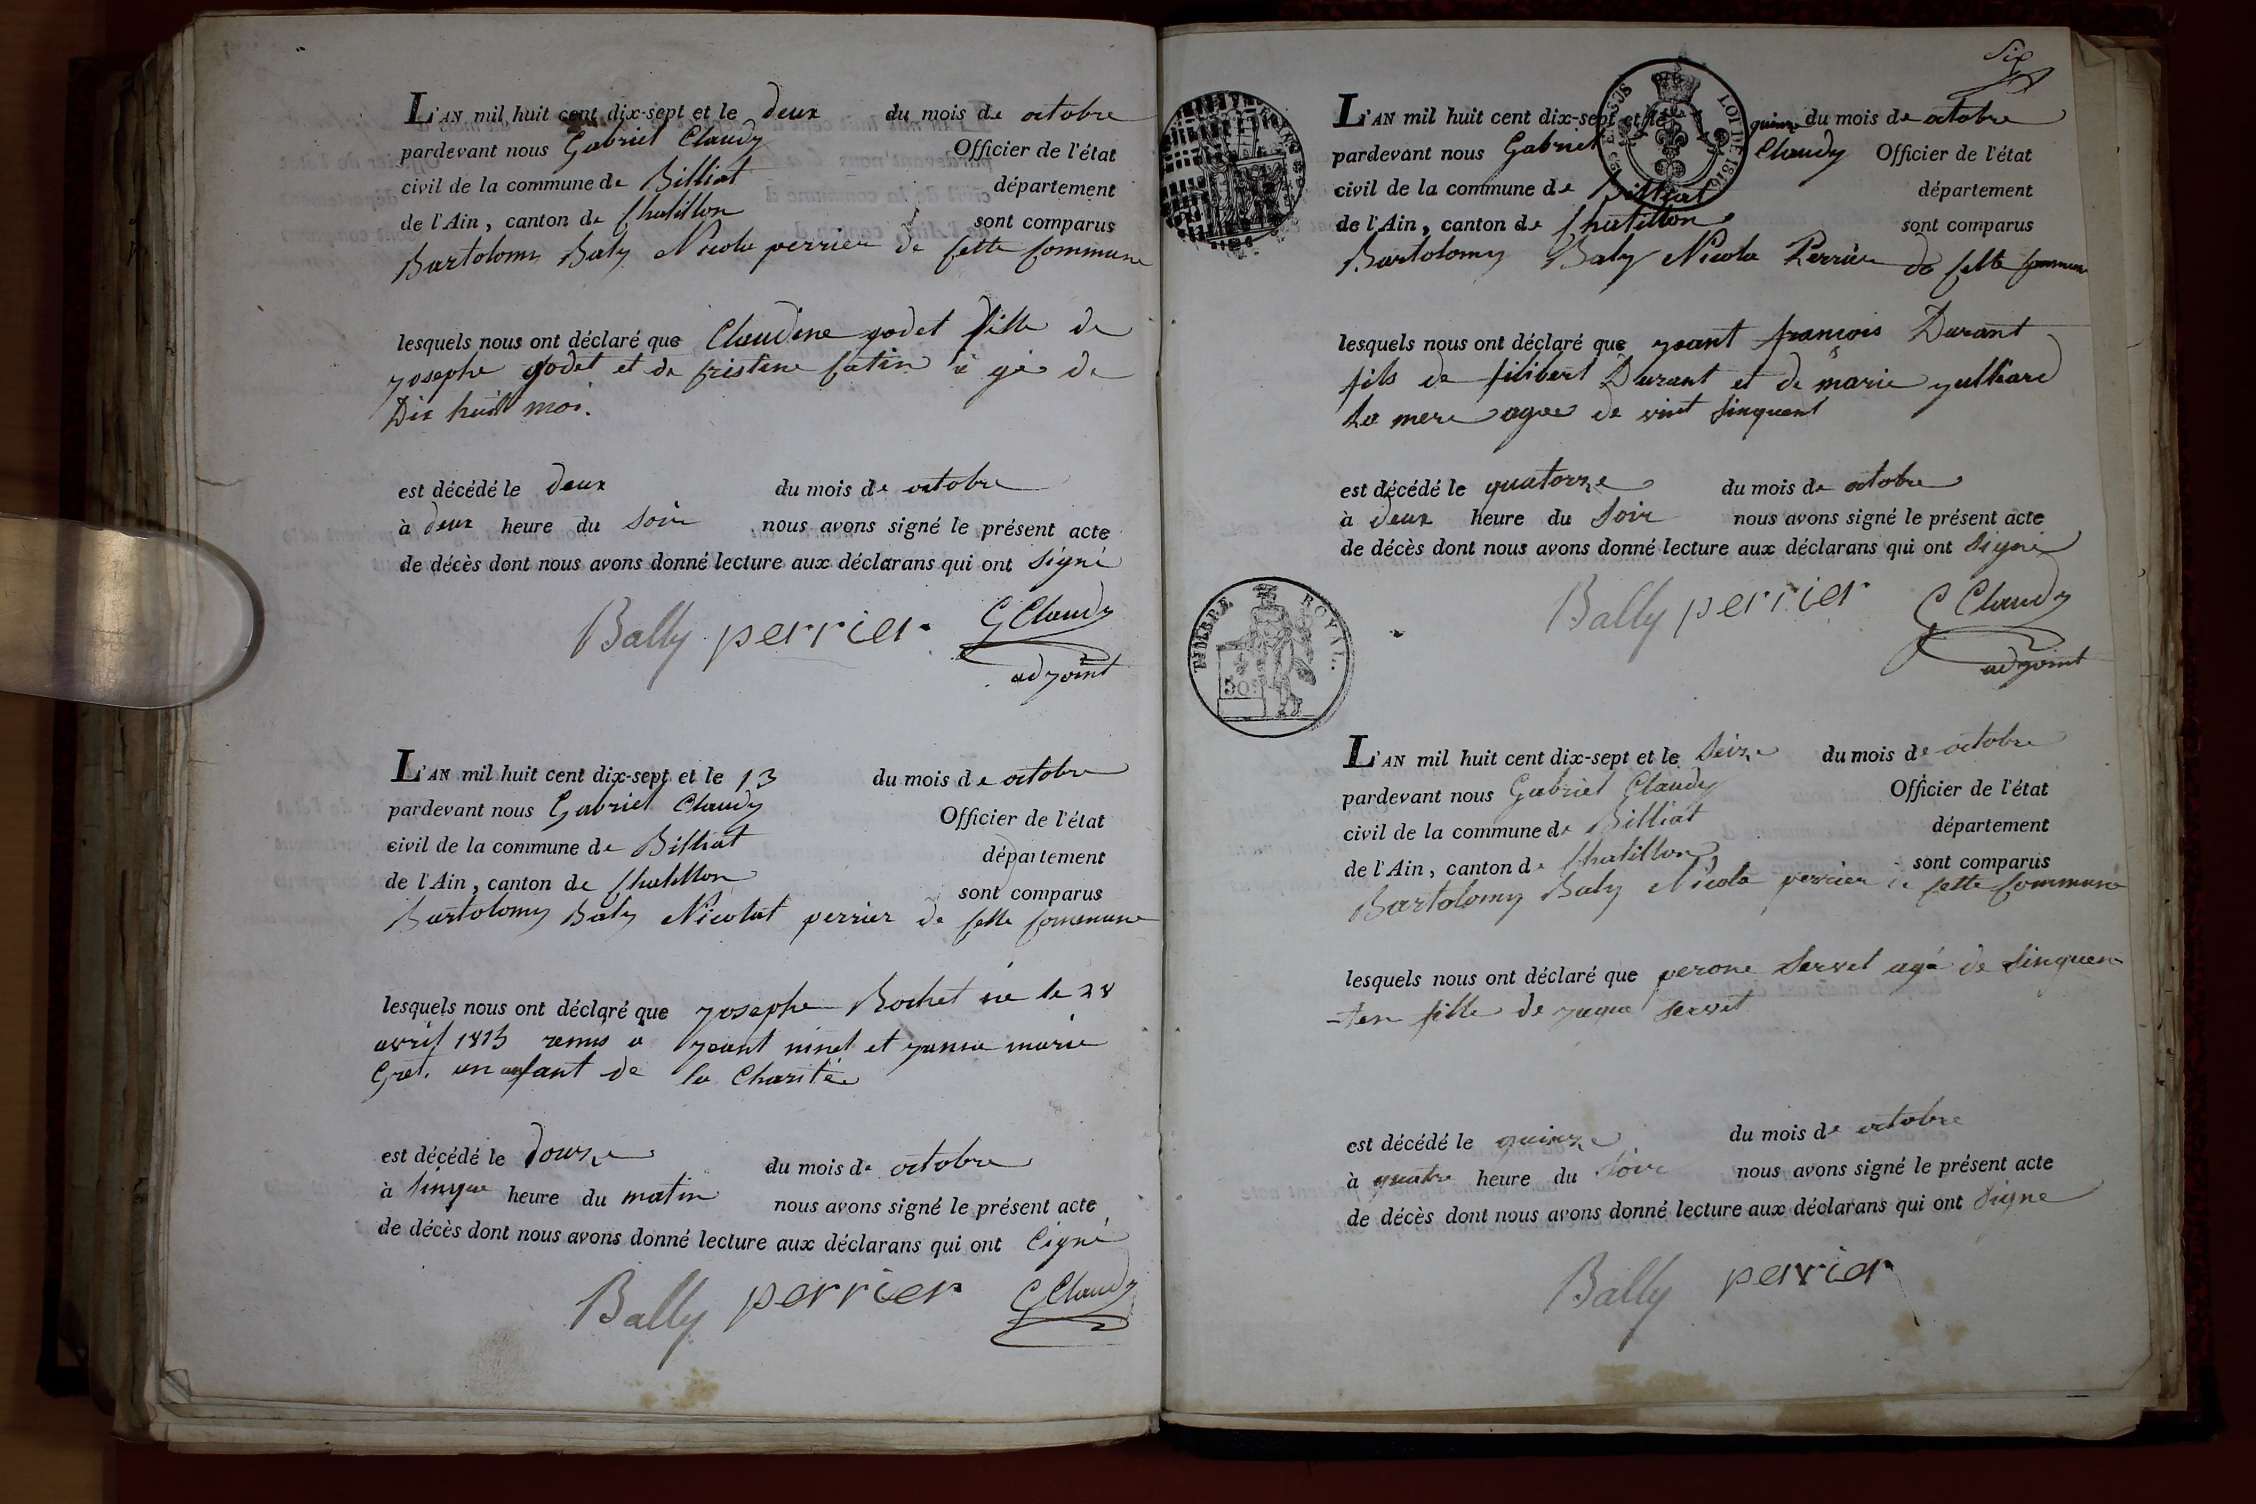 L'AN mil huit cent dix-sept et le deux du mois de octobre
pardevant nous Gabriel Claudy Officier de l'état
civil de la commune de Billiat département
de l'Ain, canton de Chatillon sont comparus
Bartolomy Baly Nicola perrier de sette sommune
lesquels nous ont déclaré que Claudine godet fille de
yosephe godet et de fristine fatin a gée de
Dix huit moi.
est décédé le deux du mois de octobre
à deux heure du soir nous avons signé le présent acte
de décès dont nous avons donné lecture aux déclarans qui ont signé
Bally perrier G Claudy
adyoint
L'AN mil huit cent dix-sept et le 13 du mois de octobre
pardevant nous Gabriel Claudy Officier de l'état
civil de la commune de Billiat département
de l'Ain, canton de Chatillon sont comparus
Bartolomy Baly Nicolat perrier de sette sommune
lesquels nous ont déclaré que yosephe Rochet né le 28
avril 1815 remis a yeant ninet et yanne marie
Gret. un anfant de la Charitée
est décédé le douze du mois de octobre
à sinque heure du matin nous avons signé le présent acte
de décès dont nous avons donné lecture aux déclarans qui ont signé
Bally perrier G Claudy
Six
L'AN mil huit cent dix-sept et le quinze du mois de octobre
pardevant nous Gabriel Claudy Officier de l'état
civil de la commune de Billiat département
de l'Ain, canton de Chatillon sont comparus
Bartolomy Baly Nicola Perrier de sette sommune
lesquels nous ont déclaré que yeant françois Durant
fils de filibert Durant et de marie yulliard
La mere agee de vint sinquent
est décédé le quatorze du mois de octobre
à deux heure du soir nous avons signé le présent acte
de décès dont nous avons donné lecture aux déclarans qui ont signé
Bally perrier G Claudy
adyoint
LOI DE 1816
TIMBRE ROYAL
50
L'AN mil huit cent dix-sept et le seize du mois de octobre
pardevant nous Gabriel Claudy Officier de l'état
civil de la commune de Billiat département
de l'Ain, canton de Chatillon sont comparus
Bartolomy Baly Nicola perrier de sette sommune
lesquels nous ont déclaré que perone servet agé de sinquen
-ten fille de yaque servet
est décédé le quinze du mois de octobre
à quatre heure du soir nous avons signé le présent acte
de décès dont nous avons donné lecture aux déclarans qui ont signé
Bally perrier